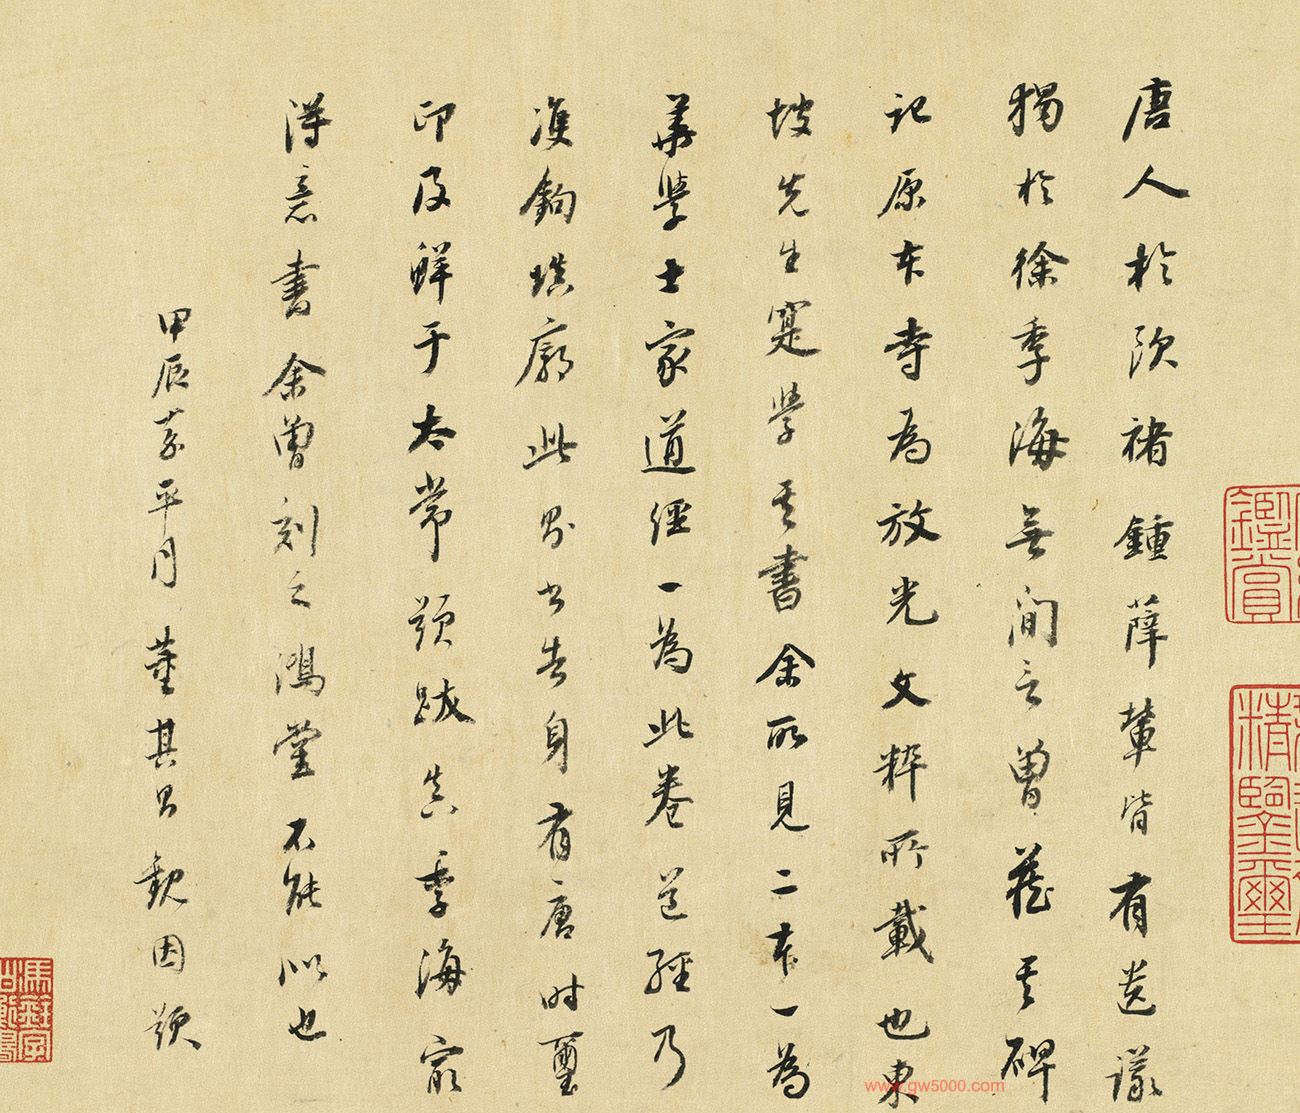 唐人於歐褚鍾薛輩皆有遺議
獨於徐季海無間言曾舊其碑
記原本寺為放光文粹所載也東
坡先生寔學其書余所見二本一為
華學士家道經一為此卷道經乃
雙鉤填廓此告身有唐時璽
印及鮮于太常題跋真季海最
得意書余曾刻之鴻堂不能似也
甲辰嘉平月董其昌觀因題
鑑賞
精鑒璽
www.gw5000.com